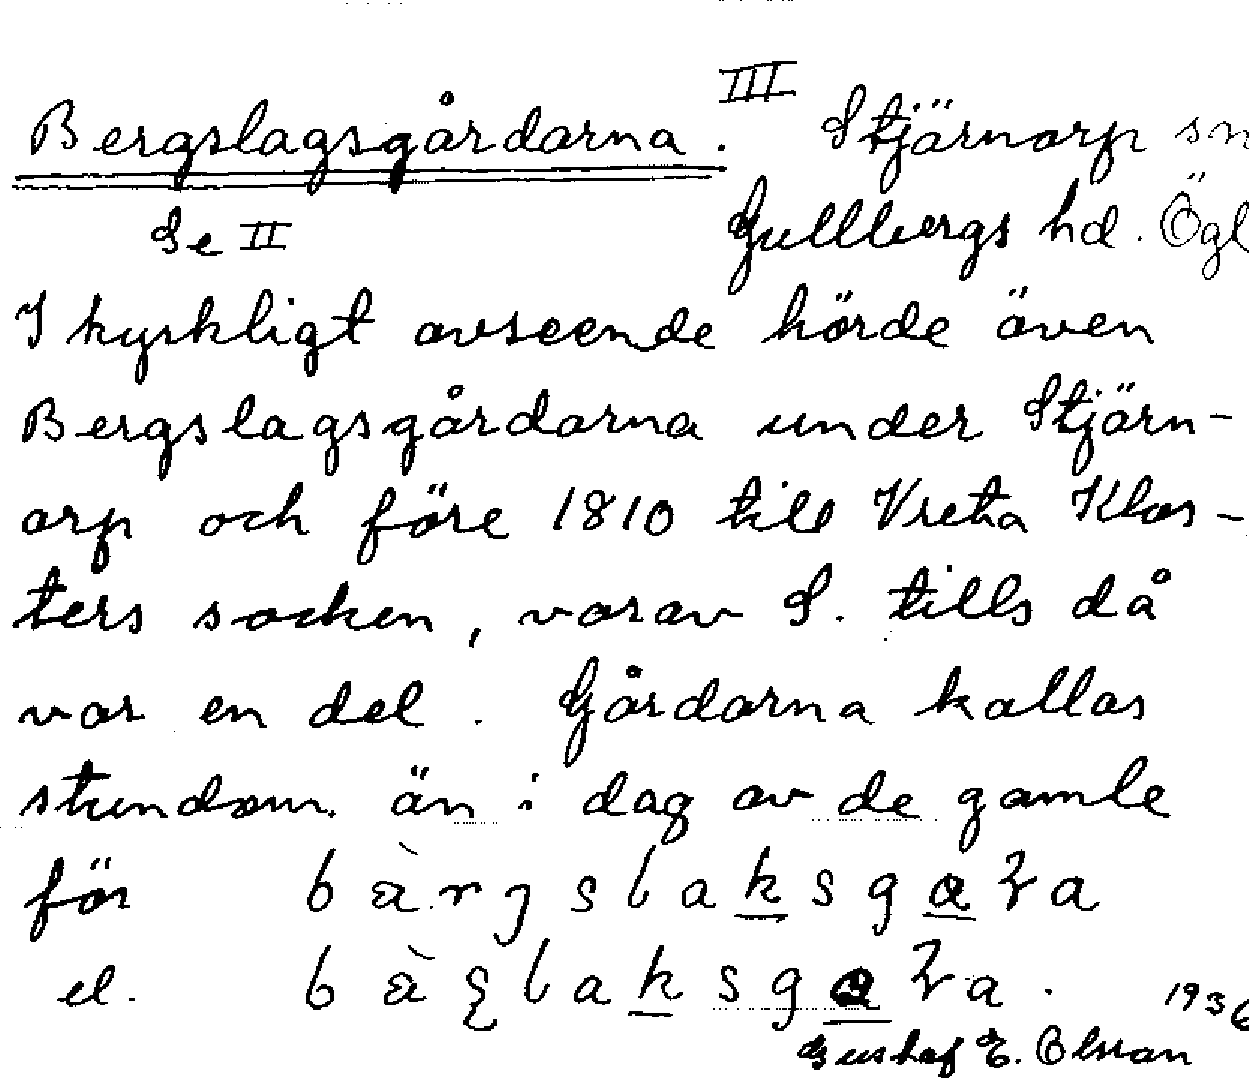 Bergslagsgårdarna. III Stjärnorp sn
Se II Gullbergs hd. Ögl
I kyrkligt avseende hörde även
Bergslagsgårdarna under Stjärn-
orp och före 1810 till Vreta Klos-
ters socken, varav S. tills då
var en del. Gårdarna kallas
stundom än i dag av de gamle
för
el.
1936
Gustaf E. Olsson